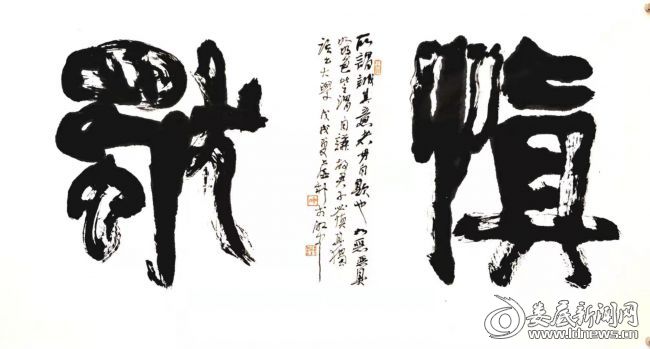 慎獨
所謂誠其意者毋自欺也如惡惡臭
如好色此之謂自謙故君子必慎其獨
語出大學戊戌夏
娄底新闻网
www.ldnews.cn